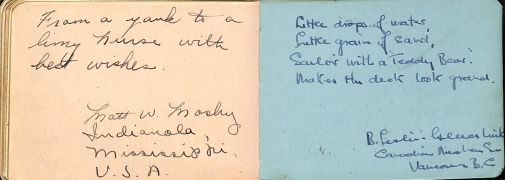 From a yank to a
limy nurse with
best wishes.
Matt W. Mosby
Indianola,
Mississippi.
U.S.A.
Little drops of water,
Little grains of sand,
Sailor with a "Teddy Bear"
Makes the deck look grand.
B. Leslie
Canadian
Vancouver B.C.